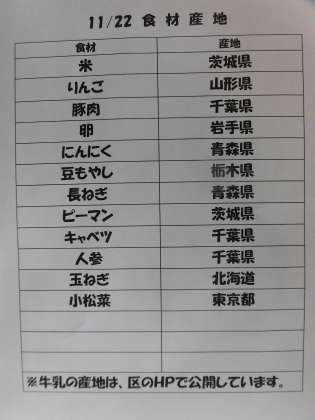 11/22 食材産地
食材 産地
米 茨城県
りんご 山形県
豚肉 千葉県
卵 岩手県
にんにく 青森県
豆もやし 栃木県
長ねぎ 青森県
ピーマン 茨城県
キャベツ 千葉県
人参 千葉県
玉ねぎ 北海道
小松菜 東京都
※牛乳の産地は、区のHPで公開しています。